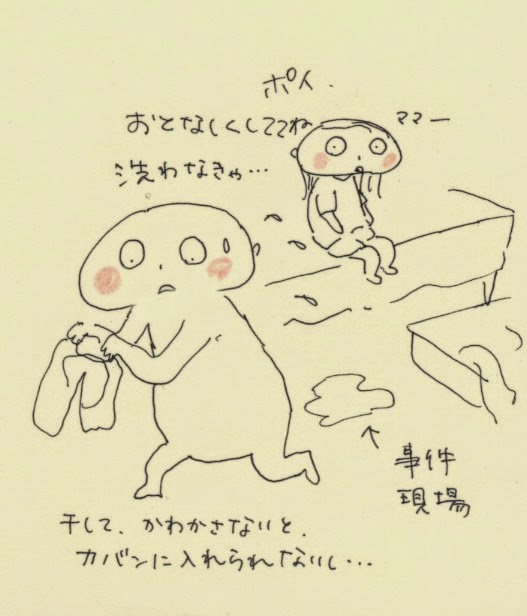 ポイ.
おとなしくしててね
ママー
洗わなきゃ…
事件
現場
干して、かわかさないと、
カバンに入れられないし…